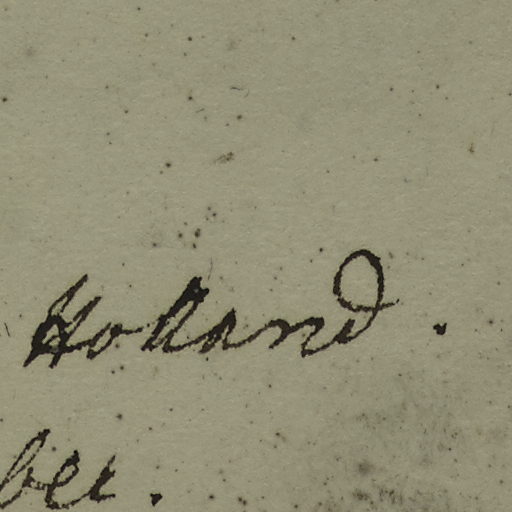 Holland.
ber.